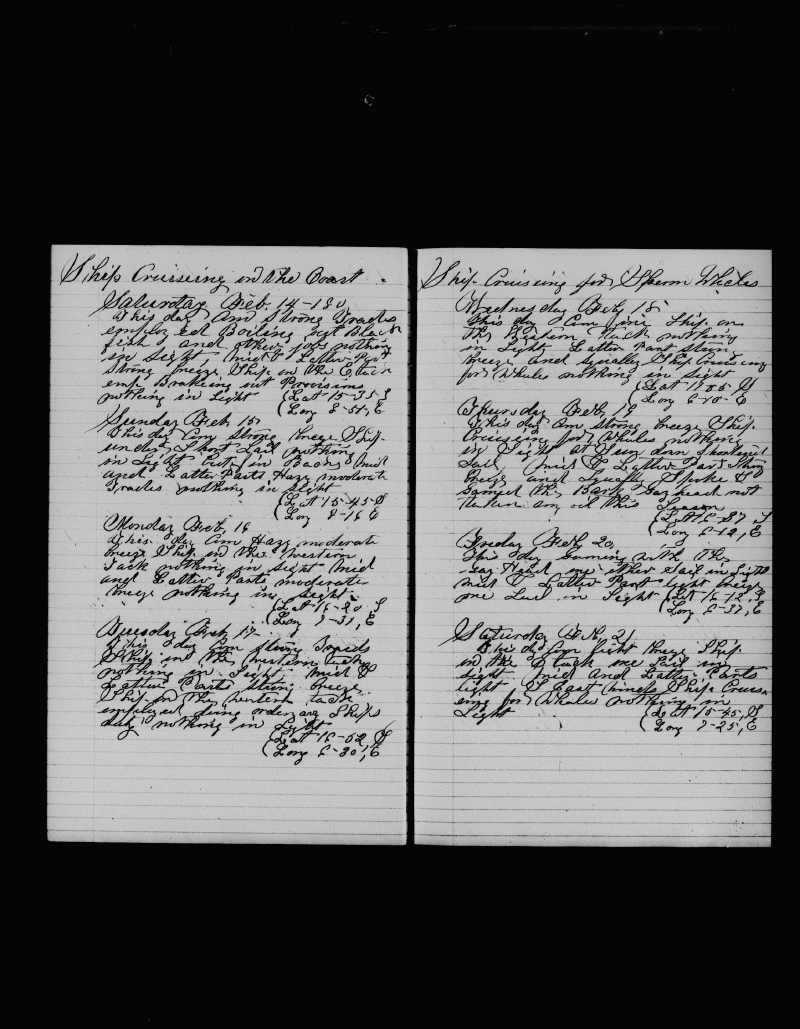 Ship Cruiseing on the Coast
Saturday Feb. 14-180
This day Com Strong Trades
employed Boiling out Black
fish and other jobs nothing
in Sight Mid & Latter Part
Strong breeze Ship on the E tack
emp Brakeing out Provisions
nothing in Sight (Lat 15-35 S
(Long 8-51, E
Sunday Feb 15
This day Com Strong breeze Ship
under Short Sail nothing
in Sight Mid
and Latter Parts Hazy moderate
Trades nothing in Sight
(Lat 15-45 S
(Long 8-16 E
Monday Feb, 16
This day Com Hazy moderate
breeze Ship on the western
Tack nothing in Sight Mid
and Latter Parts moderate
breeze nothing in Sight
(Lat 16-20 S
(Long 7-31, E
Tuesday Feb 17
This day Com Strong Trades
Ship on the western tack
nothing in Sight Mid &
Latter Parts Strong breeze
Ship on the western tack
employed doing Ships
duty nothing in Sight
(Lat 16-52 S
(Long 6-30, E
Ship Cruiseing for Sperm Whales
Wednesday Feb, 18
This day Com fine Ship on
the Western Tack nothing
in Sight Latter Part Strong
breeze and Squally Ship Cruiseing
for Whales nothing in Sight
(Lat 17 05 S
(Long 6-10 E
Thursday Feb, 19
This day Com strong breeze Ship
Cruiseing for Whales nothing
in Sight at Sun down Shortened
Sail Mid & Latter Part Strong
breeze and Squally Spoke &
Gamed the Bark Gay head not
taken any oil this Season
(Lat 16-37 S
(Long 6-12, E
Friday Feb 20,
This day Gaming with the
Gay Head one other Sail in Sight
Mid & Latter Part light breeze
one Sail in Sight (Lat 16-12, S
(Long 6-37, E
Saturday Feb, 21
This day Com light breeze Ship
on the E tack one Sail in
Sight Mid and Latter Parts
light Ship Cruise
ing for Whales nothing in
Sight (Lat 15-45, S
(Long 7-25, E